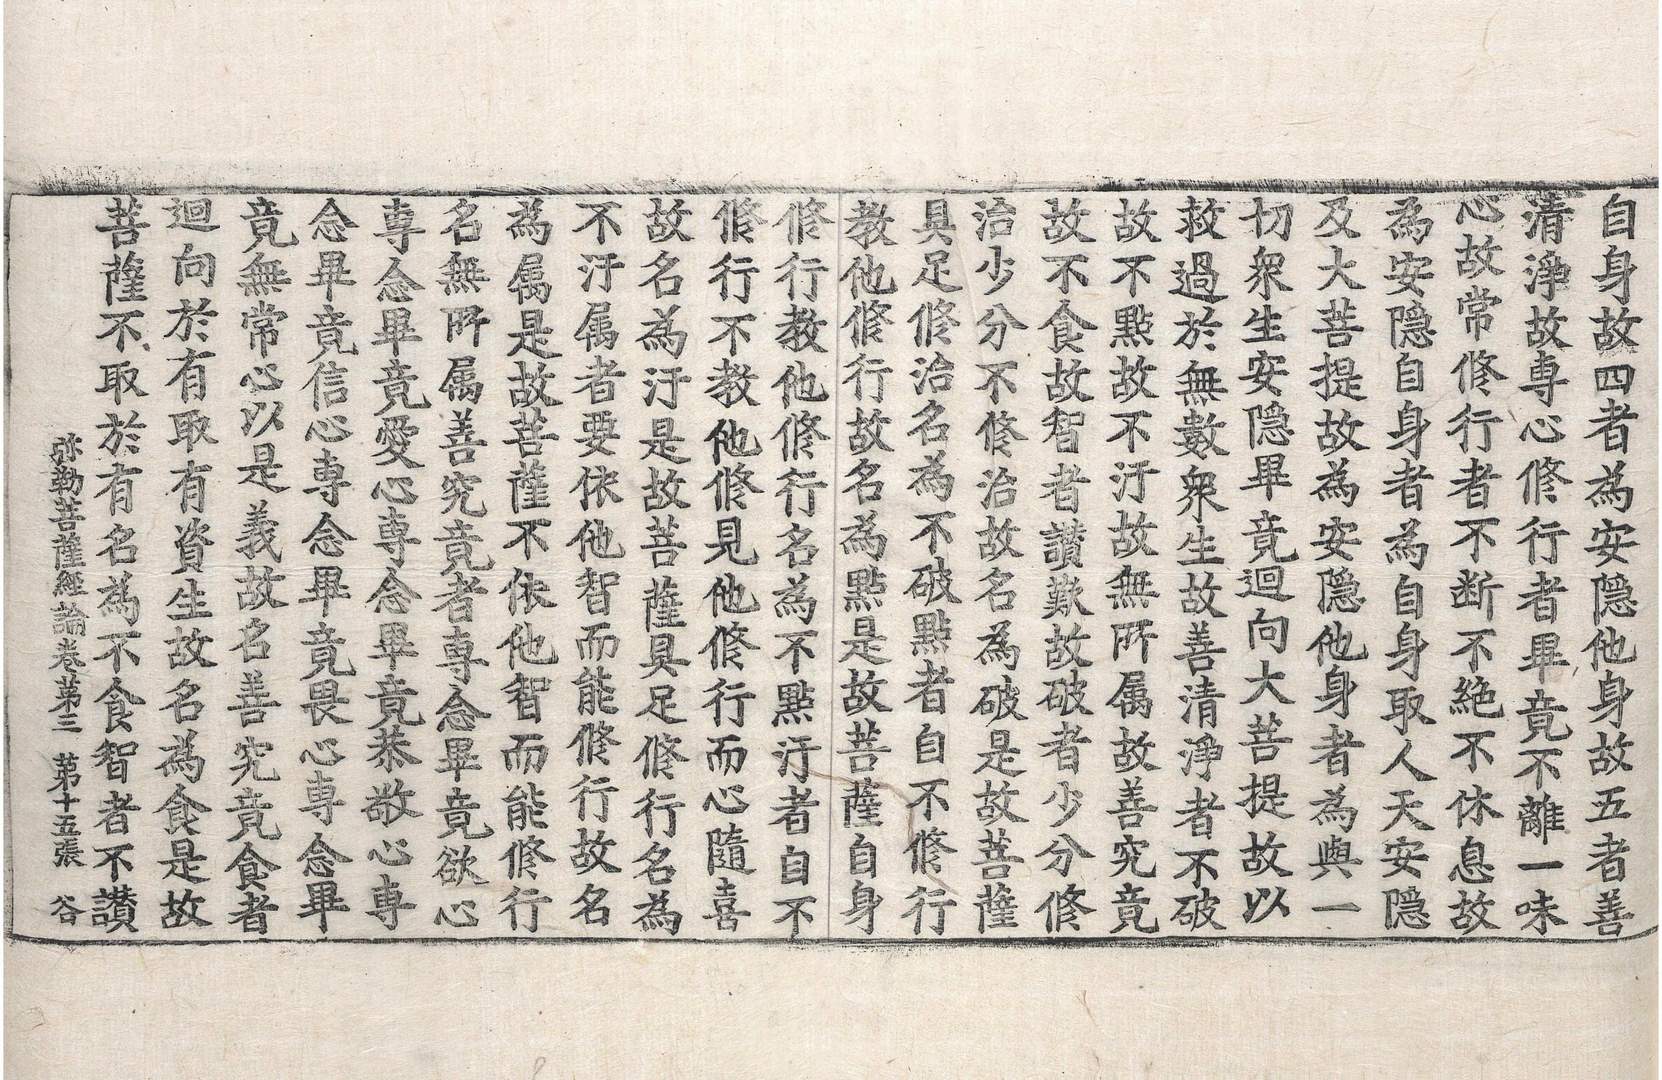 自身故四者為安隱他身故五者善
清淨故専心修行者畢竟不離一味
心故常修行者不断不絶不休息故
為安隱自身者為自身取人天安隱
及大菩提故為安隱他身者為與一
切衆生安隱畢竟迴向大菩提故以
救過於無數衆生故善清淨者不破
故不點故不汙故無所属故善究竟
故不食故智者讃歎故破者少分修
治少分不修治故名為破是故菩薩
具足修治名為不破點者自不修行
教他修行故名為點是故菩薩自身
修行教他修行名為不點汙者自不
修行不教他修見他修行而心隨喜
故名為汙是故菩薩具足修行名為
不汙属者要依他智而能修行故名
為属是故菩薩不依他智而能修行
名無所属善究竟者専念畢竟欲心
専念畢竟愛心専念畢竟恭敬心専
念畢竟信心専念畢竟畏心専念畢
竟無常心以是義故名善究竟食者
迴向於有取有資生故名為食是故
菩薩不取於有名為不食智者不讃
弥勒菩薩經論卷苐三 苐十五張 谷